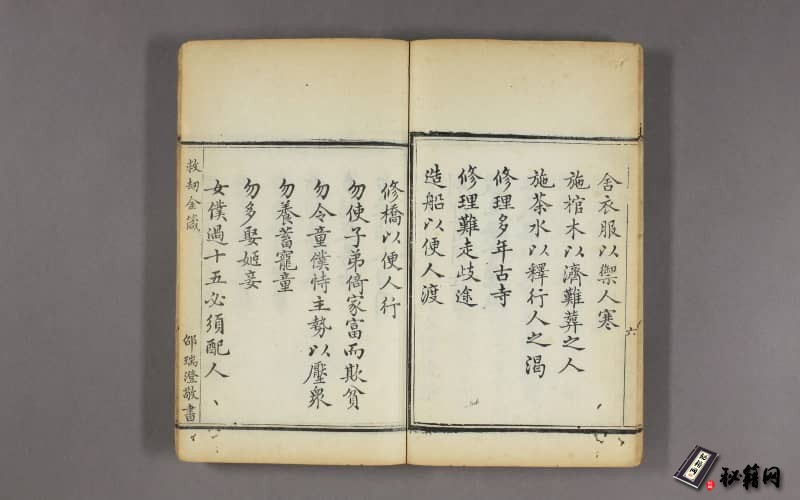 六
舍衣服以禦人寒
施棺木以濟難葬之人
施茶水以釋行人之渴
修理多年古寺
修理難走歧途
造船以便人渡
修橋以便人行
勿使子弟倚家富而欺貧
勿令童僕恃主勢以壓衆
勿養蓄寵童
勿多娶姬妾
女僕過十五必須配人
救劫金箴
邵瑞澄敬書
秘籍网